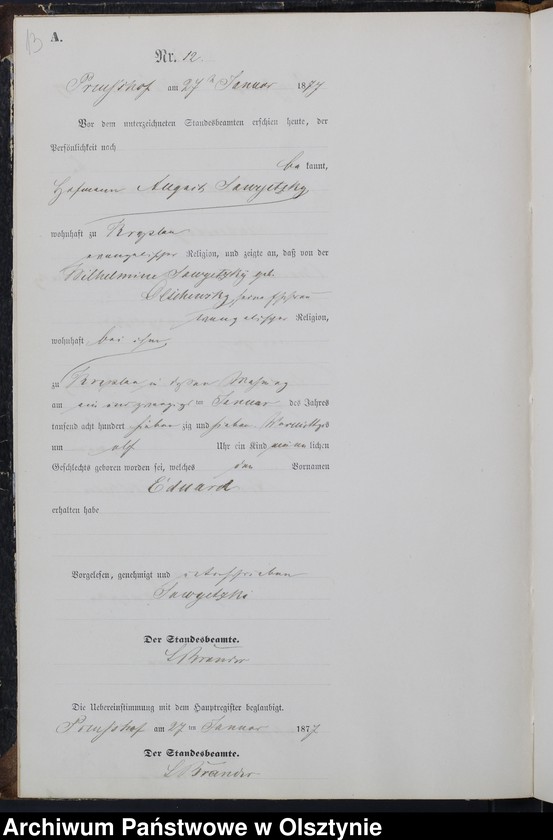 13
A.
Nr. 12.
Preußhof am 27ten Januar 1877
Vor dem unterzeichneten Standesbeamten erschien heute, der
Persönlichkeit nach
be kannt,
August
wohnhaft zu
evangelischer Religion, und zeigte an, daß von der
Wilhelmine geb.
Olschewsky, seine Ehefrau
evangelischer Religion,
wohnhaft bei ihm
zu in dessen Wohnung
am ein und zwanzigsten Januar des Jahres
tausend acht hundert sieben zig und sieben Vormittags
um elf Uhr ein Kind männ lichen
Geschlechts geboren worden sei, welches den Vornamen
Eduard
erhalten habe
Vorgelesen, genehmigt und unterschrieben
Der Standesbeamte.
Die Uebereinstimmung mit dem Hauptregister beglaubigt.
Preußhof am 27ten Januar 1877
Der Standesbeamte.
Archiwum Państwowe w Olsztynie